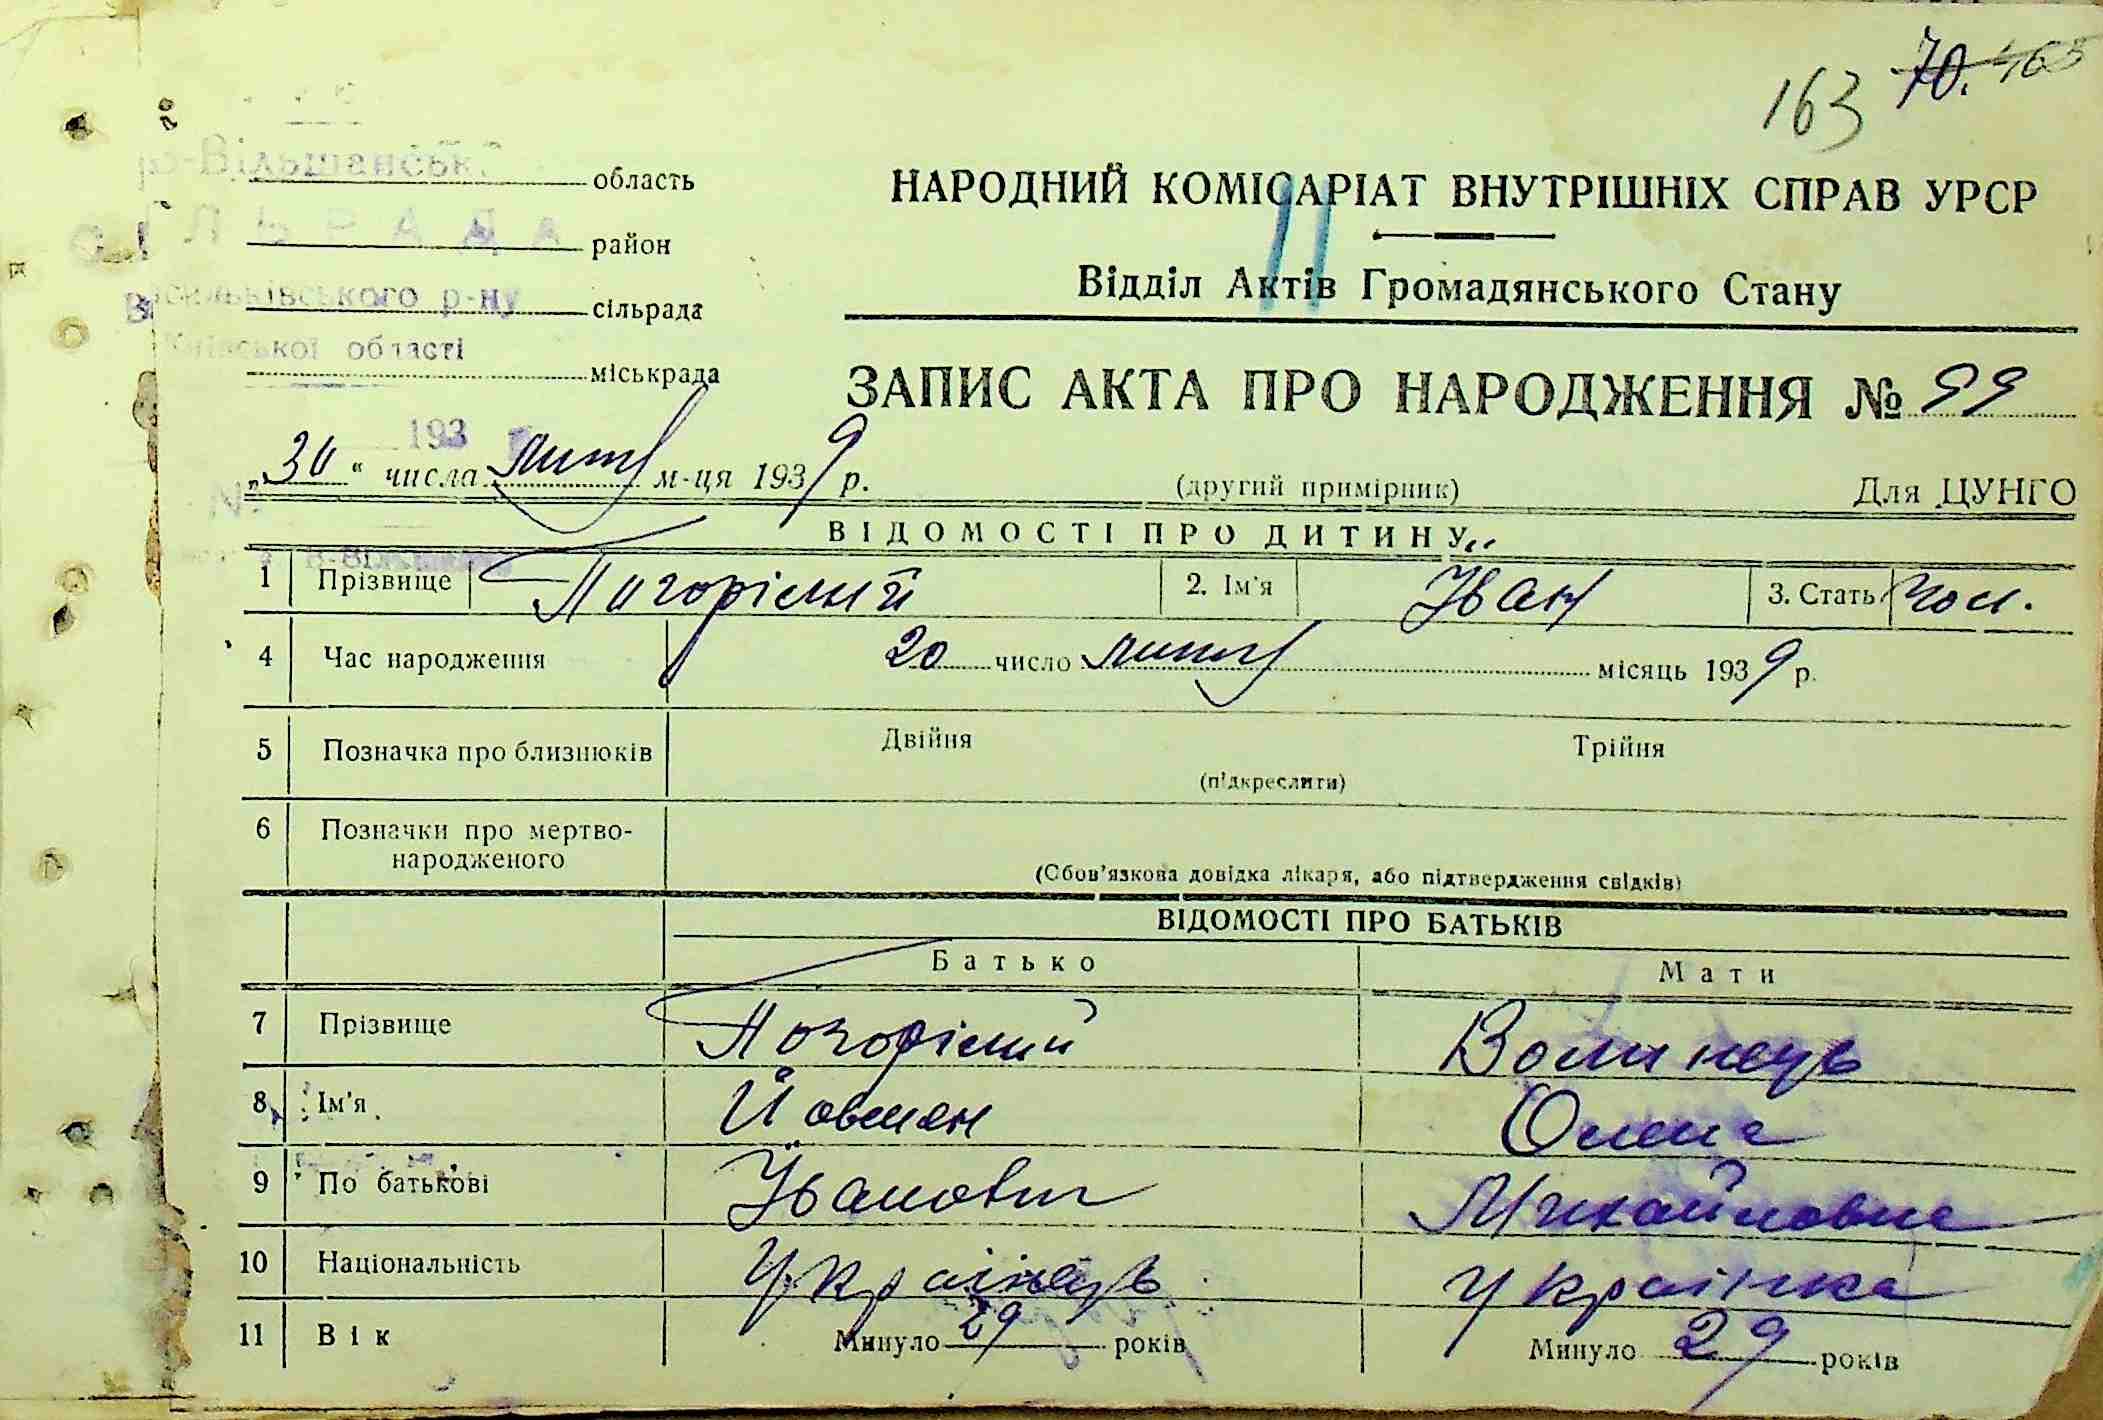 163 70. 163
-Вільшанськ
область
НАРОДНИЙ КОМІСАРІАТ ВНУТРІШНІХ СПРАВ УРСР
ЛЬРАДА
район
Відділ Актів Громадянського Стану
Васильківського р-ну
сільрада
Київської області
міськрада
ЗАПИС АКТА ПРО НАРОДЖЕННЯ № 99
193
„30“ числа м-ця 1939 р.
(другий примірник)
Для ЦУНГО
№
ВІДОМОСТІ ПРО ДИТИНУ
1 Прізвище Погорілий 2. Ім'я Іван 3. Стать чол.
4 Час народження 20 число місяць 1939 р.
5 Позначка про близнюків Двійня Трійня
(підкреслити)
6 Позначки про мертво-
народженого
(Обов'язкова довідка лікаря, або підтвердження свідків)
ВІДОМОСТІ ПРО БАТЬКІВ
Батько Мати
7 Прізвище Погорілий Волинець
8 Ім'я Олена
9 По батькові Іванович Михайловна
10 Національність Українець Українка
11 Вік Минуло 29 років Минуло 29 років